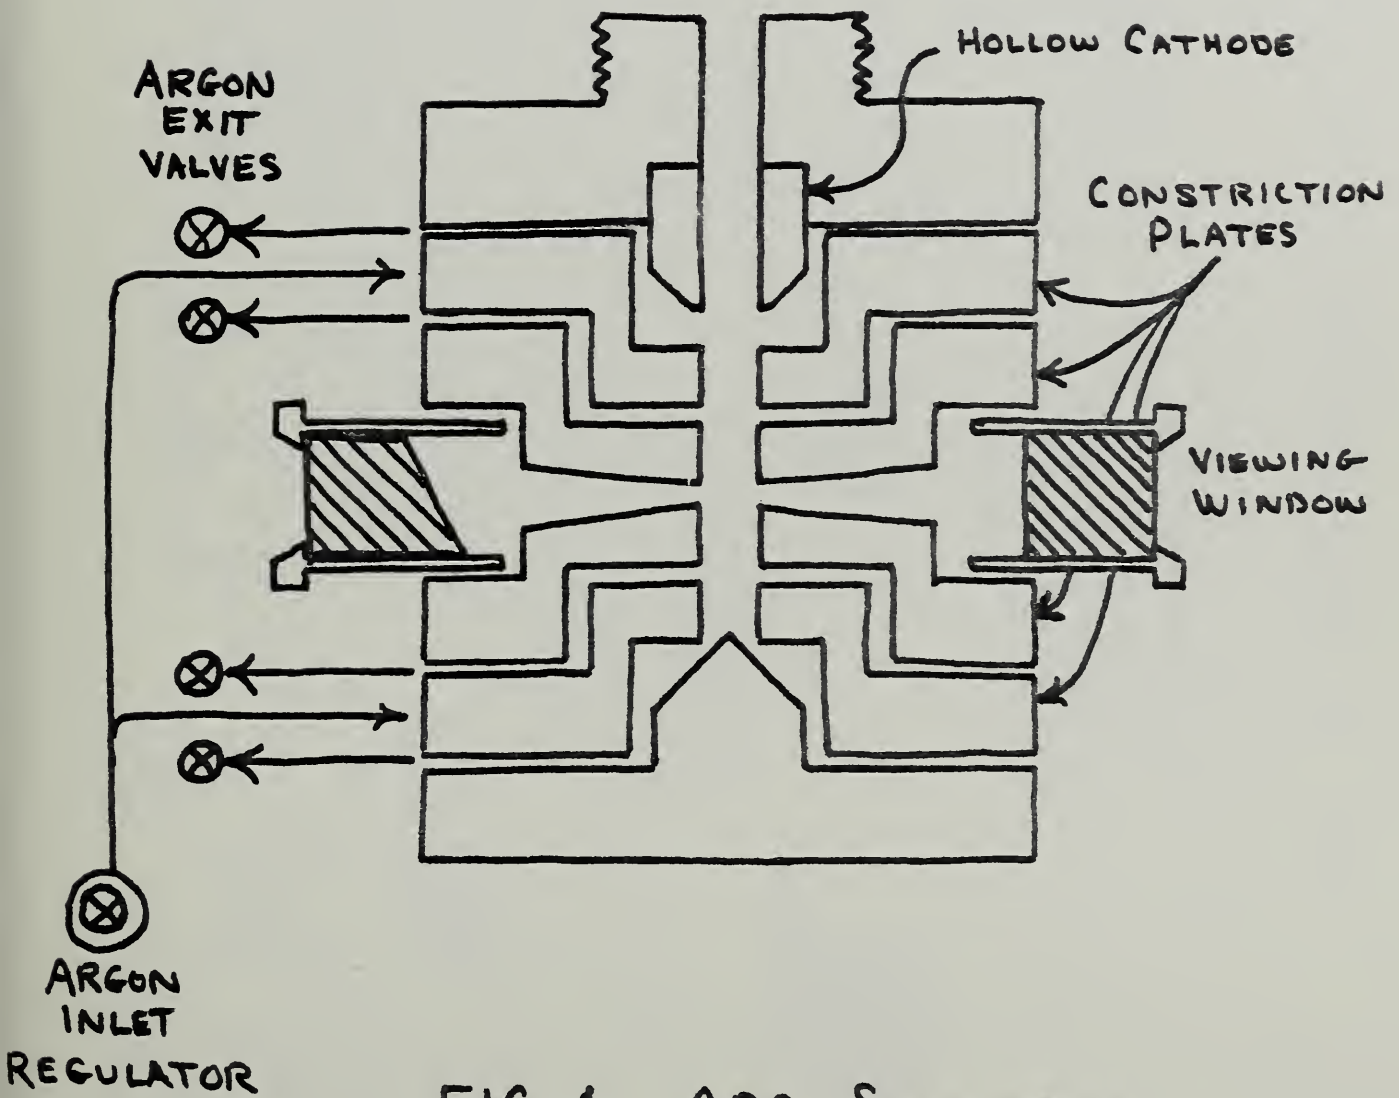 ARGON
EXIT
VALVES
HOLLOW CATHODE
CONSTRICTION
PLATES
VIEWING
WINDOW
ARGON
INLET
REGULATOR